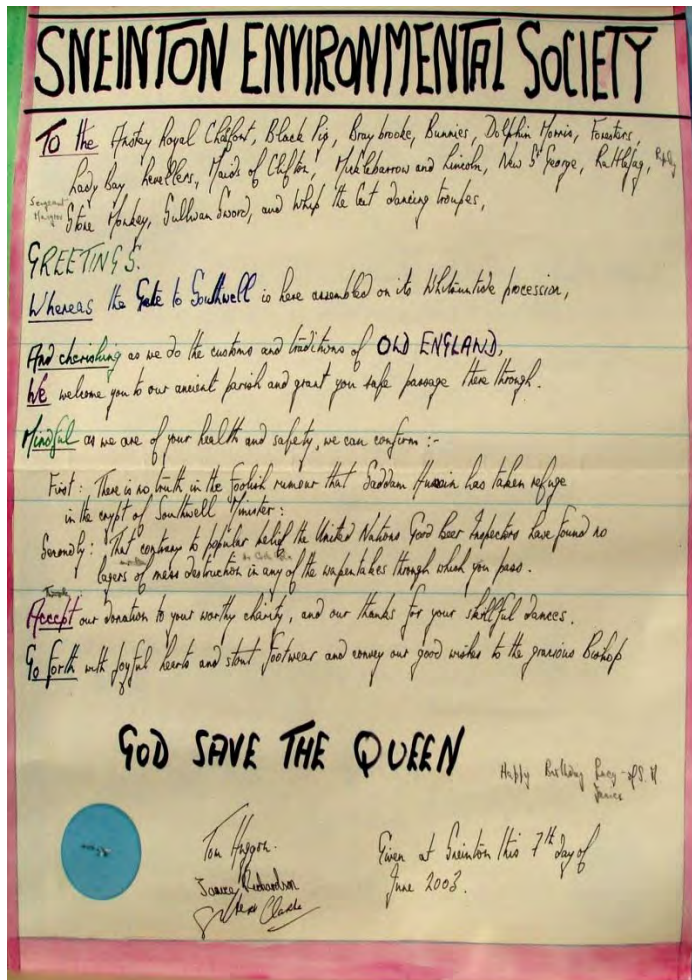 SNEINTON ENVIRONMENTAL SOCIETY
To the Anstey Royal Chalfont, Black Pig, Braybrooke, Bunnies, Dolphin Morris, Foresters,
Lady Bay Revellers, Maids of Clifton, Mucklebarrow and Lincoln, New St George, Rattlejag, Ripley
Stone Monkey, Sullivan Sword, and Whip the Cat dancing troupes,
GREETINGS.
Whereas the Gate to Southwell is here assembled on its Whitsuntide procession,
And cherishing as we do the customs and traditions of OLD ENGLAND,
We welcome you to our ancient parish and grant you safe passage there through.
Mindful as we are of your health and safety, we can confirm :-
First : There is no truth in the foolish rumour that Saddam Husain has taken refuge
in the crypt of Southwell Minster :
Secondly : That contrary to popular belief the United Nations Good Beer Inspectors have found no
lagers of mass destruction in any of the wapentakes through which you pass.
Accept our donation to your worthy charity, and our thanks for your skillful dances.
Go forth with joyful hearts and stout footwear and convey our good wishes to the gracious Bishop
GOD SAVE THE QUEEN
Happy Birthday
Tom
Janice Richardson
Clarke
Given at Sneinton this 7th day of
June 2003.